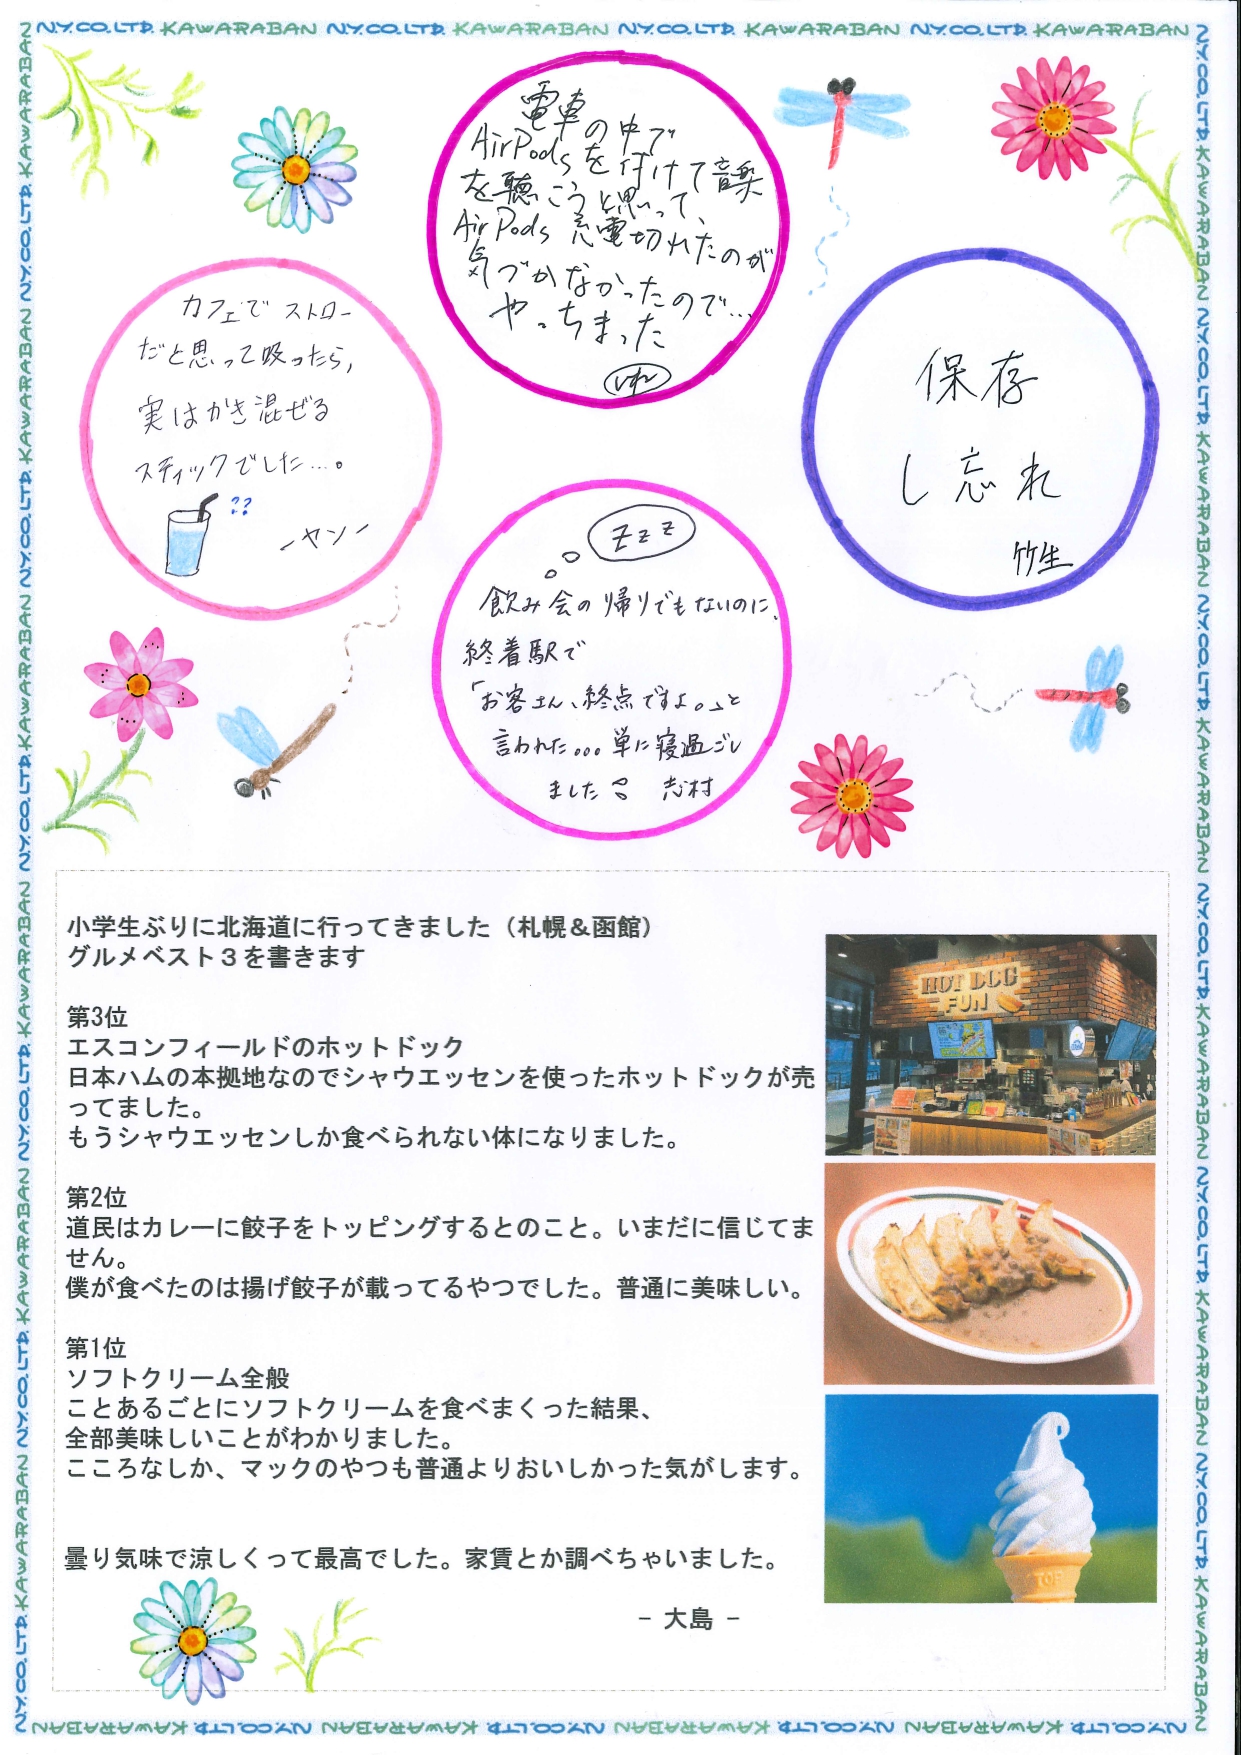 N.Y.CO.LTD. KAWARABAN N.Y.CO.LTD. KAWARABAN N.Y.CO.LTD. KAWARABAN N.Y.CO.LTD. KAWARABAN
電車の中で
AirPodsを付けて音楽
を聴こうと思って、
AirPods充電切れたのが
気づかなかったので…
やっちまった
カフェでストロー
だと思って吸ったら,
実はかき混ぜる
スティックでした…。
??
ーヤンー
保存
し忘れ
竹生
zzz
飲み会の帰りでもないのに、
終着駅で
「お客さん、終点ですよ。」と
言われた。。。単に寝過ごし
ました 志村
小学生ぶりに北海道に行ってきました（札幌＆函館）
グルメベスト３を書きます
第3位
エスコンフィールドのホットドック
日本ハムの本拠地なのでシャウエッセンを使ったホットドックが売
ってました。
もうシャウエッセンしか食べられない体になりました。
HOT DOG
FUN
第2位
道民はカレーに餃子をトッピングするとのこと。いまだに信じてま
せん。
僕が食べたのは揚げ餃子が載ってるやつでした。普通に美味しい。
第1位
ソフトクリーム全般
ことあるごとにソフトクリームを食べまくった結果、
全部美味しいことがわかりました。
こころなしか、マックのやつも普通よりおいしかった気がします。
TOP
曇り気味で涼しくって最高でした。家賃とか調べちゃいました。
− 大島 −